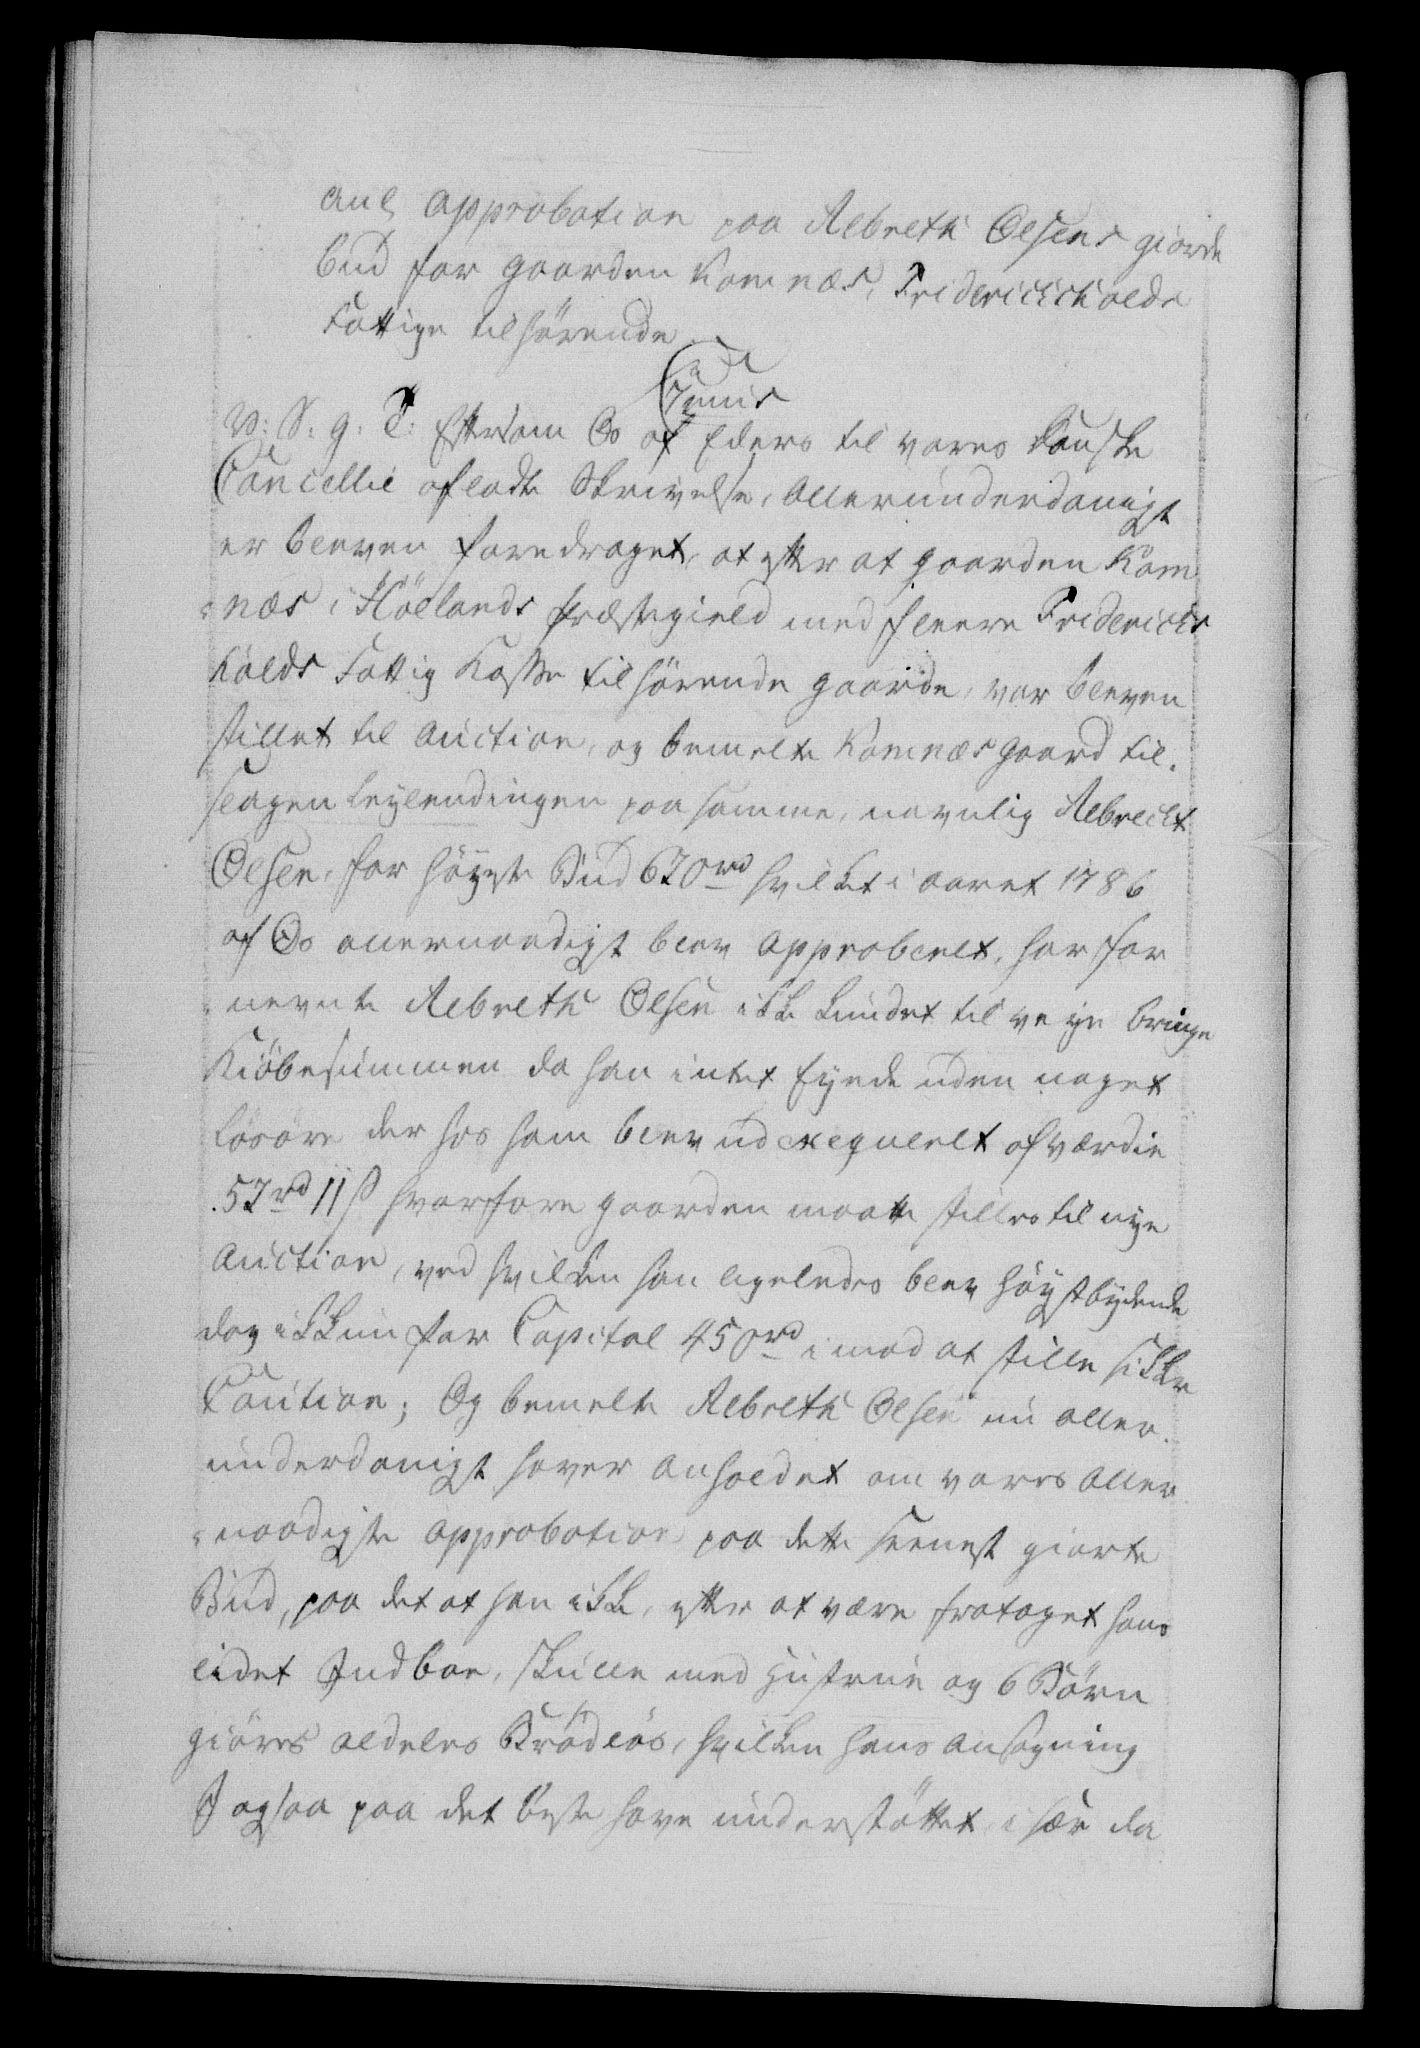 anl. Approbation paa Albreth Olsens giorde
bud for gaarden Komnæs, Fridericichalds
Fattige tilhørende.
Junii
V: S: g: T: Eftersom Os af Eders til vores Danske
Cancellie afladte Skrivelse, allerunderdanigst
er bleven foredraget, at efter at gaarden Kom
næs i Hölands Præstegield med fleere Fridericks
halds Fattig Kasse tilhørende gaarde, var bleven
stillet til Auction, og bemelte Komnæs gaard til-
slagen Leylendingen paa samme, navnlig Albrecht
Olsen, for høyste Bud 670 rd hvilket i aaret 1786
af Os allernaadigst blev approberet, har for
nevnte Albreth Olsen ikke kundet til veye bringe
Kiöbesummen da han intet eyede uden noget
Lösöre der hos ham blev udexequeret af værdie
57 rd 11 ß hvorfore gaarden maatte stilles til nye
Auction, ved hvilken han ligeledes blev høystbydende
dog ikkun for Capital 450 rd imod at stille sikker
Caution; Og bemelte Albreth Olsen nu aller-
underdanigst haver anholdet om vores aller
naadigste approbation paa dette seenest giorte
Bud, paa det at han ikke, efter at være frataget hans
lidet Indboe, skulle med Hustrue og 6 Børn
giøres aldeles Brødløs, hvilken hans ansøgning
I ogsaa paa det beste have understøttet, i sær da